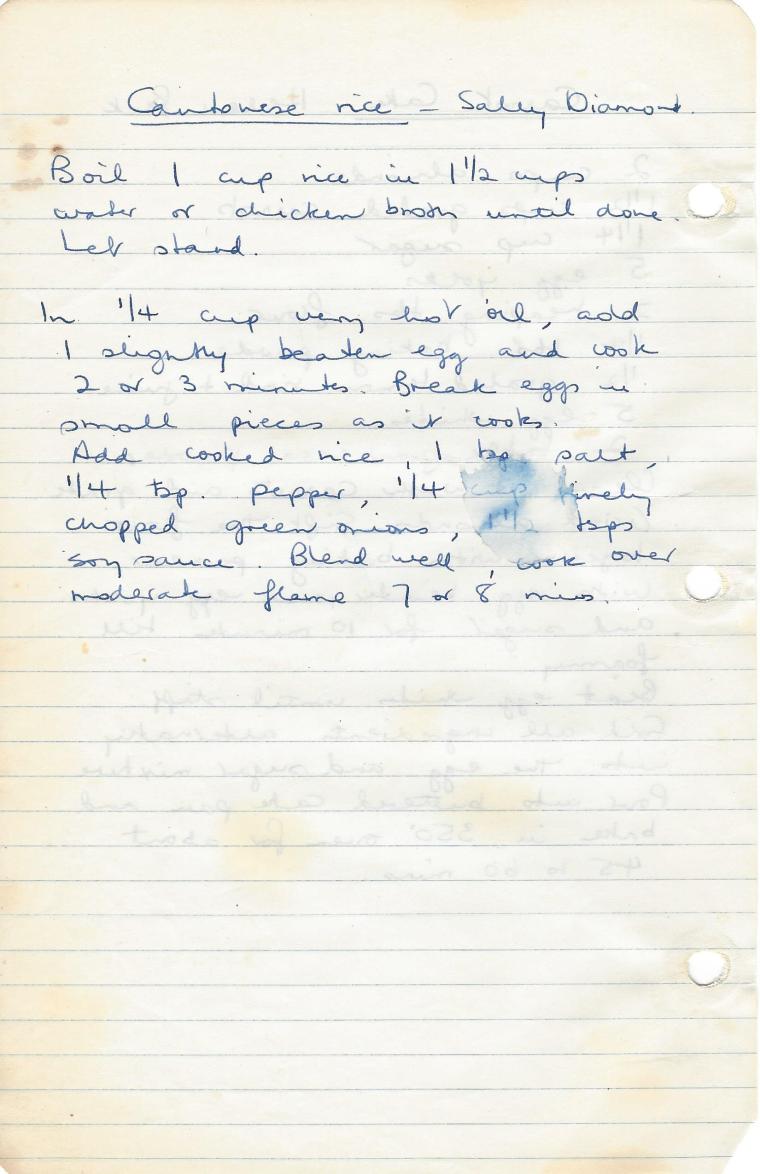 Cantonese rice - Sally Diamond.
Boil 1 cup rice in 1 1/2 cups
water or chicken broth until done.
Let stand.
In 1/4 cup very hot oil, add
1 slightly beaten egg and cook
2 or 3 minutes. Break eggs in
small pieces as it cooks.
Add cooked rice, 1 tsp. salt,
1/4 tsp. pepper, 1/4 cup finely
chopped green onions, 1 1/2 tsps
soy sauce. Blend well, cook over
moderate flame 7 or 8 mins.